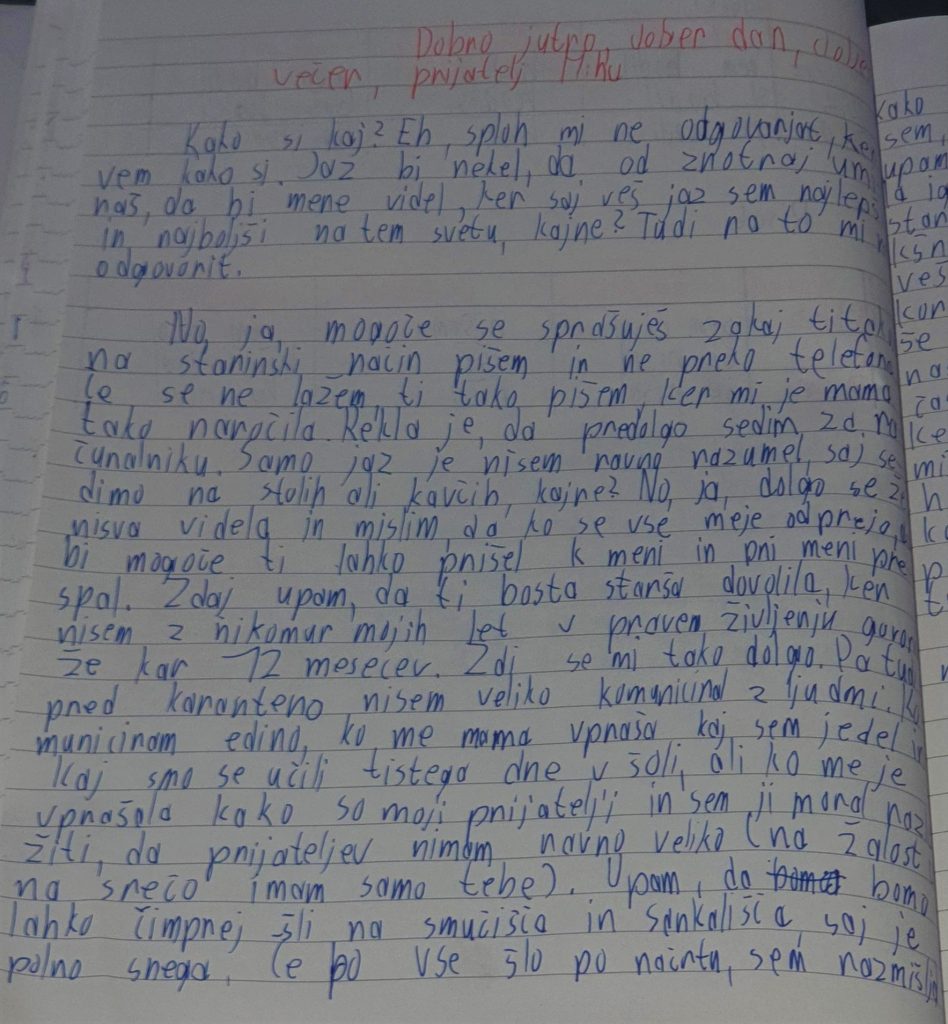 Dobro jutro, dober dan, dober
večer, prijatelj Miha
Kako si kaj? Eh, sploh mi ne odgovarjat, ker
vem kako si. Jaz bi rekel, da od znotraj umi
raš, da bi mene videl, ker saj veš jaz sem najlepši
in najboljši na tem svetu, kajne? Tudi na to mi
odgovorit.
No, ja, mogoče se sprašuješ zakaj ti tako
na starinski način pišem in ne preko telefona
Če se ne lažem, ti tako pišem, ker mi je mama
tako naročila. Rekla je, da predolgo sedim za ra
čunalniku. Samo jaz je nisem ravno razumel, saj se
dimo na stolih ali kavčih, kajne? No, ja, dolgo se ž
nisva videla in mislim, da ko se vse meje odprejo,
bi mogoče ti lahko prišel k meni in pri meni pre
spal. Zdaj upam, da ti bosta starša dovolila, ker
nisem z nikomur mojih let v pravem življenju govor
že kar 12 mesecev. Zdi se mi tako dolgo. Pa tud
pred karanteno nisem veliko komuniciral z ljudmi. Ko
municiram edino, ko me mama vpraša kaj sem jedel in
kaj smo se učili tistega dne v šoli, ali ko me je
vprašala kako so moji prijatelji in sem ji moral raz
žiti, da prijateljev nimam ravno veliko (na žalost
na srečo imam samo tebe). Upam, da bomo
lahko čimprej šli na smučišča in sankališča, saj je
polno snega. Če bo vse šlo po načrtu, sem razmišlja
kako
sem,
upam
stan
veš
kor
še
na
ča
ke
mi
h